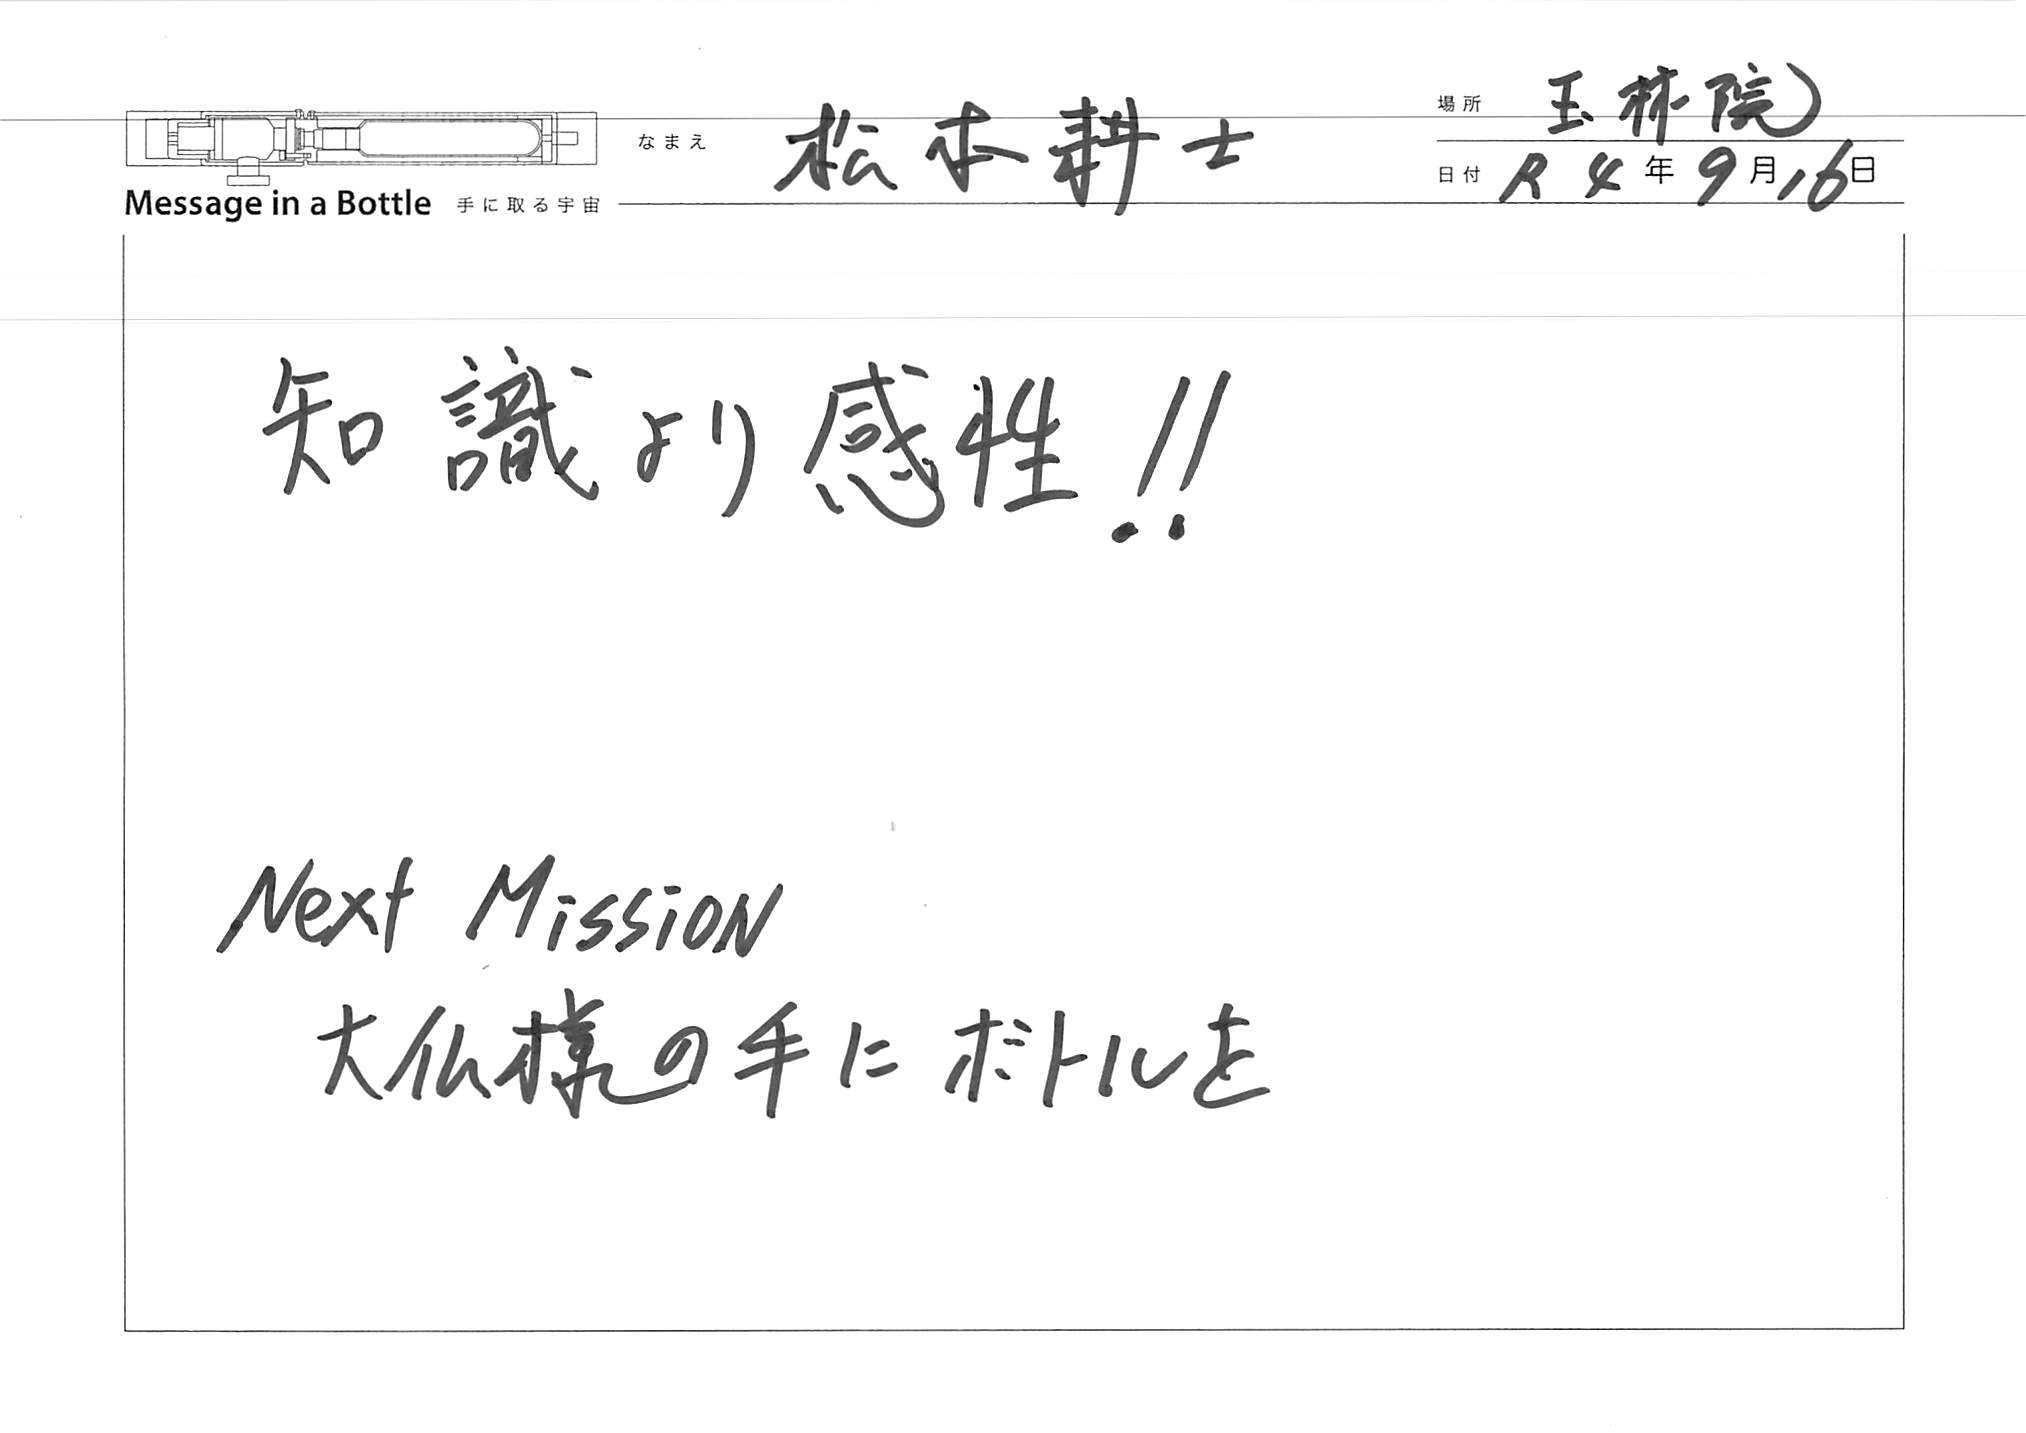 場所 玉林院
なまえ 松本耕士
日付 R4年9月16日
Message in a Bottle 手に取る宇宙
知識より感性!!
Next Mission
大仏様の手にボトルを